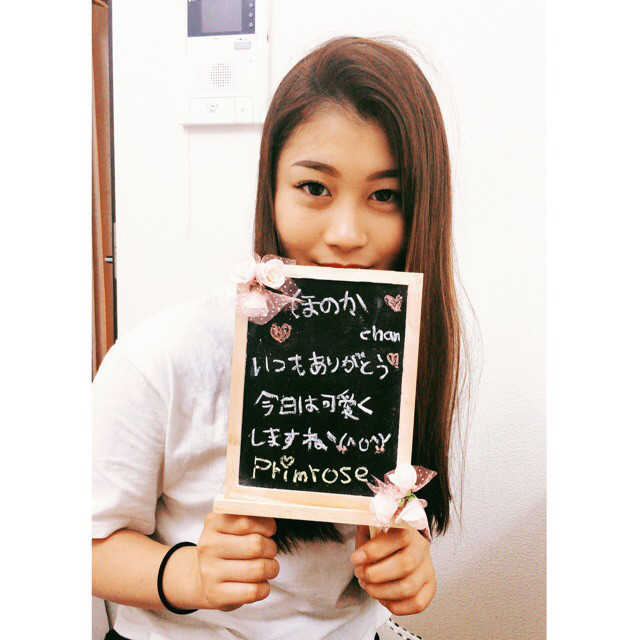 ほのか
chan
いつもありがとう
今日は可愛く
しますね\(^o^)/
Primrose